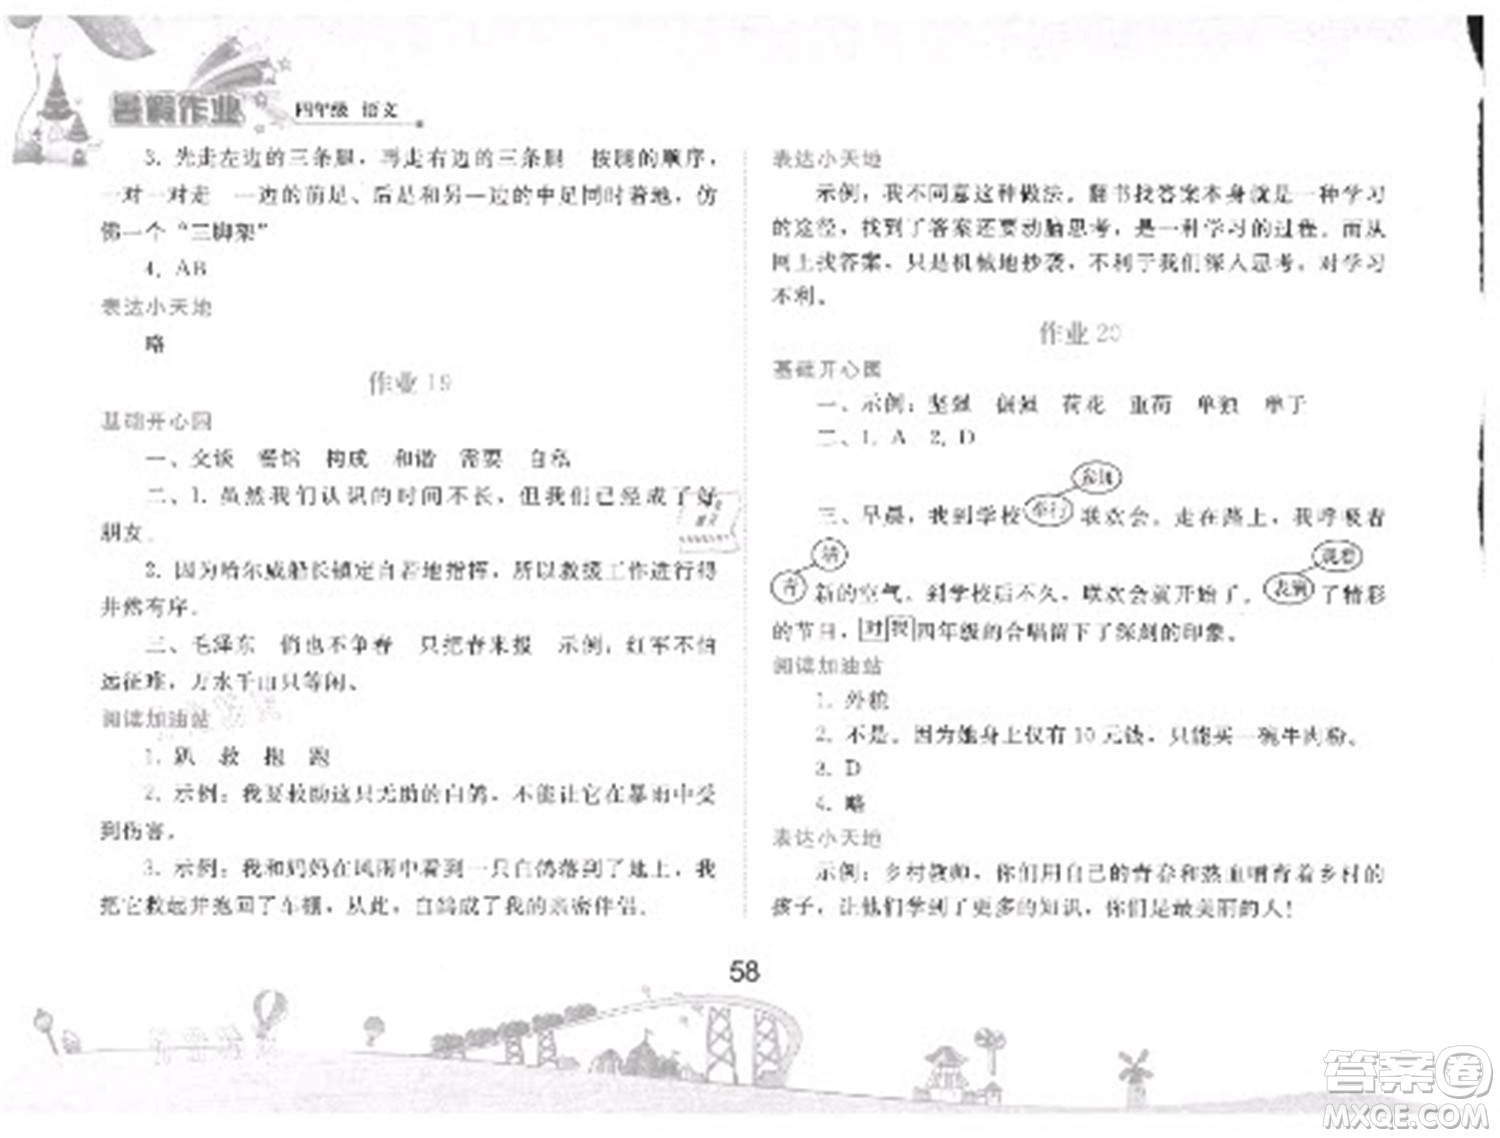 暑假作业 四年级 语文
3. 先走左边的三条腿，再走右边的三条腿 按腿的顺序，
一对一对走 一边的前足、后足和另一边的中足同时着地，仿
佛一个“三脚架”
4. AB
表达小天地
略
作业 19
基础开心园
一、交谈 餐馆 构成 和谐 需要 自私
二、1. 虽然我们认识的时间不长，但我们已经成了好
朋友。
2. 因为哈尔威船长镇定自若地指挥，所以救援工作进行得
井然有序。
三、毛泽东 俏也不争春 只把春来报 示例：红军不怕
远征难，万水千山只等闲。
阅读加油站
1. 趴 救 抱 跑
2. 示例：我要救助这只无助的白鸽，不能让它在暴雨中受
到伤害。
3. 示例：我和妈妈在风雨中看到一只白鸽落到了地上，我
把它救起并抱回了车棚，从此，白鸽成了我的亲密伴侣。
表达小天地
示例：我不同意这种做法。翻书找答案本身就是一种学习
的途径，找到了答案还要动脑思考，是一种学习的过程。而从
网上找答案，只是机械地抄袭，不利于我们深入思考，对学习
不利。
作业 20
基础开心园
一、示例：坚强 倔强 荷花 重荷 单独 单于
二、1. A 2. D
参加
三、早晨，我到学校举行联欢会。走在路上，我呼吸着
清 观看
青新的空气。到学校后不久，联欢会就开始了。表演了精彩
的节目，对我四年级的合唱留下了深刻的印象。
阅读加油站
1. 外貌
2. 不是。因为她身上仅有 10 元钱，只能买一碗牛肉粉。
3. D
4. 略
表达小天地
示例：乡村教师，你们用自己的青春和热血哺育着乡村的
孩子，让他们学到了更多的知识，你们是最美丽的人！
58
答案圈
MXQE.COM